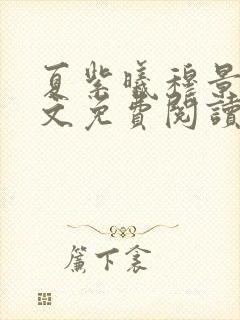 夏紫曦穆景
文免費閱讀
簾下衾